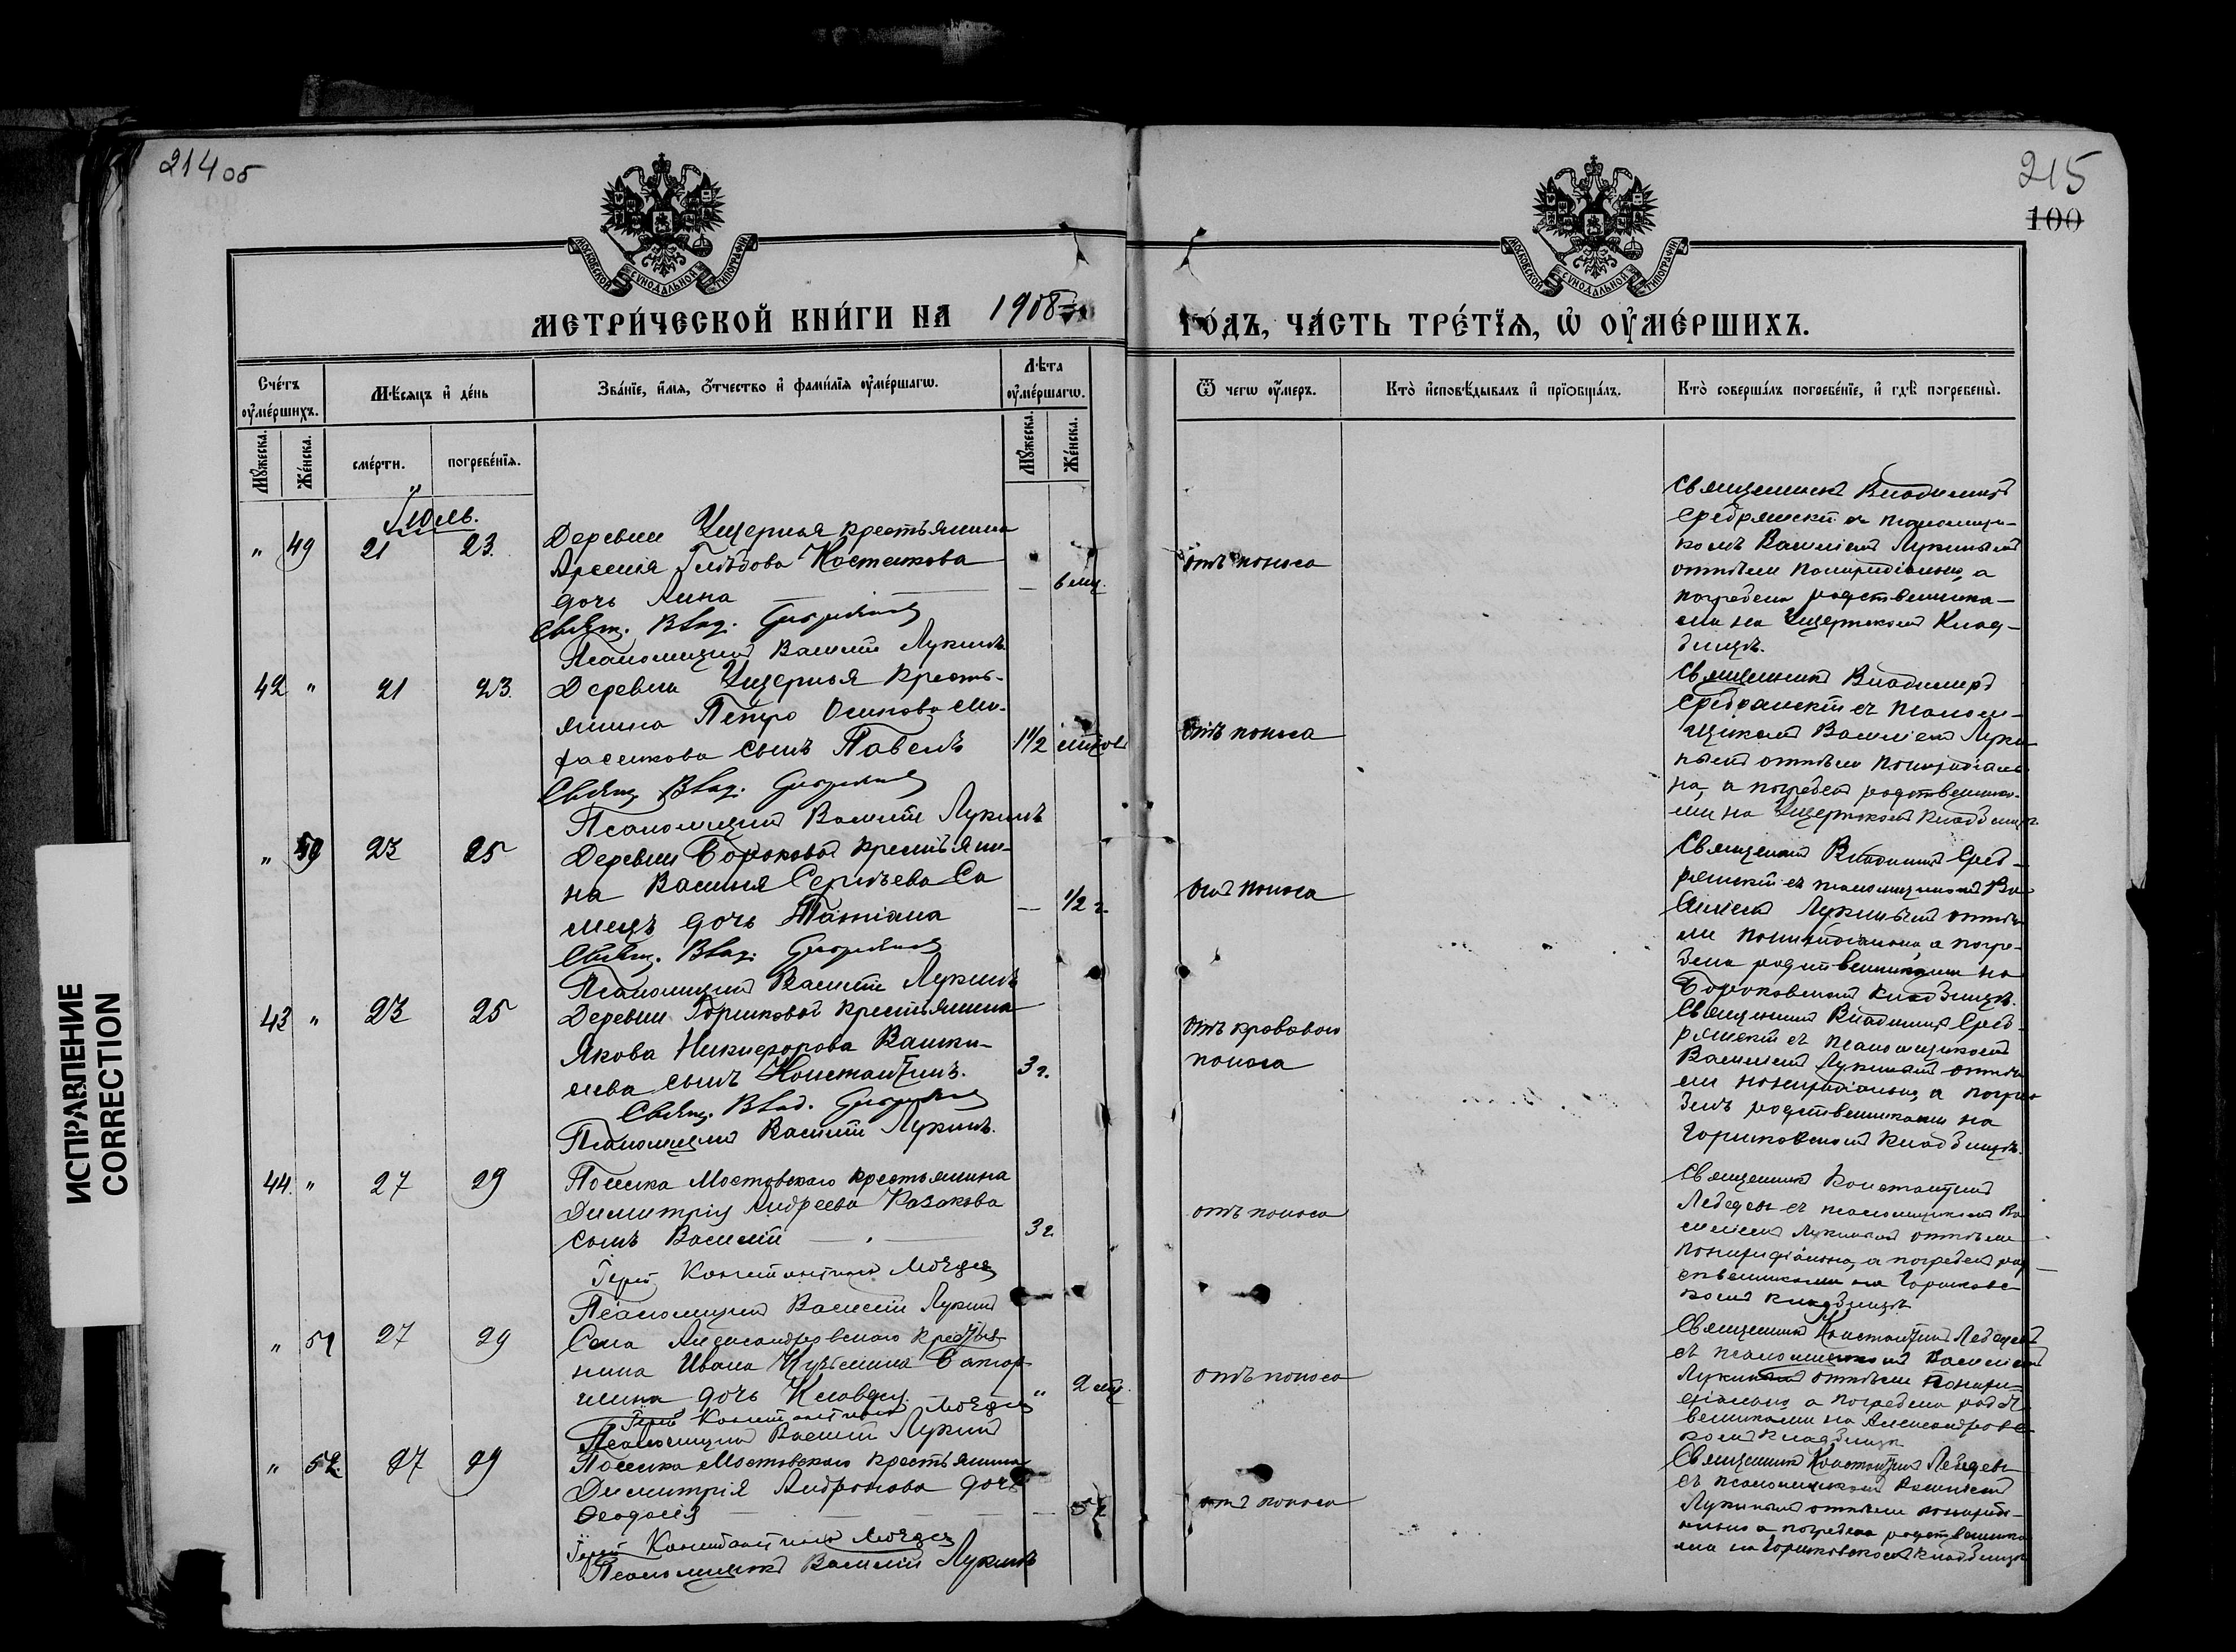 214 об
215
100
МОСКОВСКОЙ СУНОДАЛЬНОЙ ТИПОГРАФІИ
МОСКОВСКОЙ СУНОДАЛЬНОЙ ТИПОГРАФІИ
МЕТРИ́ЧЕСКОЙ КНИ́ГИ НА 1908
ГО́ДЪ, ЧА́СТЬ ТРЕ́ТЇѦ, Ѡ҆ ОУ҆МЕ́РШИХЪ.
Сче́тъ оу҆ме́ршихъ.
Мѣ́сяцъ и҆ де́нь
Зва́нїе, и҆́мѧ, ѻ҆́тчество и҆ фами́лїѧ оу҆ме́ршагѡ.
Лѣ́та оу҆ме́ршагѡ.
Ѿ чегѡ̀ оу҆́меръ.
Кто̀ и҆сповѣ́дывалъ и҆ прїѡбща́лъ.
Кто̀ соверша́лъ погребе́нїе, и҆ гдѣ̀ погребены̀.
Мꙋ́жеска.
Же́нска.
сме́рти.
погребе́нїѧ.
Мꙋ́жеска.
Же́нска.
Іюль.
" 49 21 23.
Деревни Ущерпья крестьянина
Арсенія Глѣбова Костенкова
дочь Анна — 6 мц.
Свящ. Влад.
Псаломщикъ Василій Лукинъ.
отъ поноса
Священникъ Владимиръ
Сребрянскій съ псаломщи-
комъ Василіемъ Лукинымъ
отпѣли, а
погребена родственника-
ми на Ущерпскомъ клад-
бищѣ.
42 " 21 23
Деревни Ущерпья кресть-
янина Петра Осипова
сынъ Павелъ 1 1/2
Свящ. Влад.
Псаломщикъ Василій Лукинъ
отъ поноса
Священникъ Владимиръ
Сребрянскій съ псалом-
щикомъ Василіемъ Луки-
нымъ отпѣли
но, а погребенъ родственника-
ми на Ущерпскомъ кладбищѣ.
" 50 23 25
Деревни крестьяни-
на Василія Сергѣева Са
дочь Татіана — 1/2 г.
Свящ. Влад.
Псаломщикъ Василій Лукинъ
отъ поноса
Священникъ Владимиръ Среб-
рянскій съ псаломщикомъ Ва-
силіемъ Лукинымъ отпѣ-
ли, а погре-
бена родственниками на
кладбищѣ.
43 " 23 25
Деревни Горшковой крестьянина
Якова Никифорова
сынъ Константинъ. 3 г.
Свящ. Влад.
Псаломщикъ Василій Лукинъ.
отъ кроваваго
поноса
Священникъ Владимиръ Среб-
рянскій съ псаломщикомъ
Василіемъ Лукинымъ отпѣ-
ли, а погре-
бенъ родственниками на
Горшковскомъ кладбищѣ.
44. " 27 29
Поселка Мостовского крестьянина
Димитрія Андреева Казакова
сынъ Василій — 3 г.
Іерей Константинъ Лебедев
Псаломщикъ Василій Лукинъ
отъ поноса
Священникъ Константинъ
Лебедевъ съ псаломщикомъ Ва-
силіемъ Лукинымъ отпѣли
, а погребенъ род-
ственниками на Горшковс-
комъ кладбищѣ
" 51 27 29
Села Александровскаго крестья-
нина Ивана Кузьмина
дочь Клавдія " 2 мц.
Іерей Константинъ Лебедев
Псаломщикъ Василій Лукинъ
отъ поноса
Священникъ Константинъ Лебедевъ
съ псаломщикомъ Василіемъ
Лукинымъ отпѣли
а погребена родст-
венниками на Александровс-
комъ кладбищѣ
" 52. 27 29
Поселка Мостовского крестьянина
Димитрія Андронова дочь
Ѳеодосія —
Іерей Константинъ Лебедев
Псаломщикъ Василій Лукинъ
отъ поноса
Священникъ Константинъ Лебедевъ
съ псаломщикомъ Василіемъ
Лукинымъ отпѣли
а погребена родственника-
ми на Горшковскомъ кладбищѣ
ИСПРАВЛЕНИЕ
CORRECTION